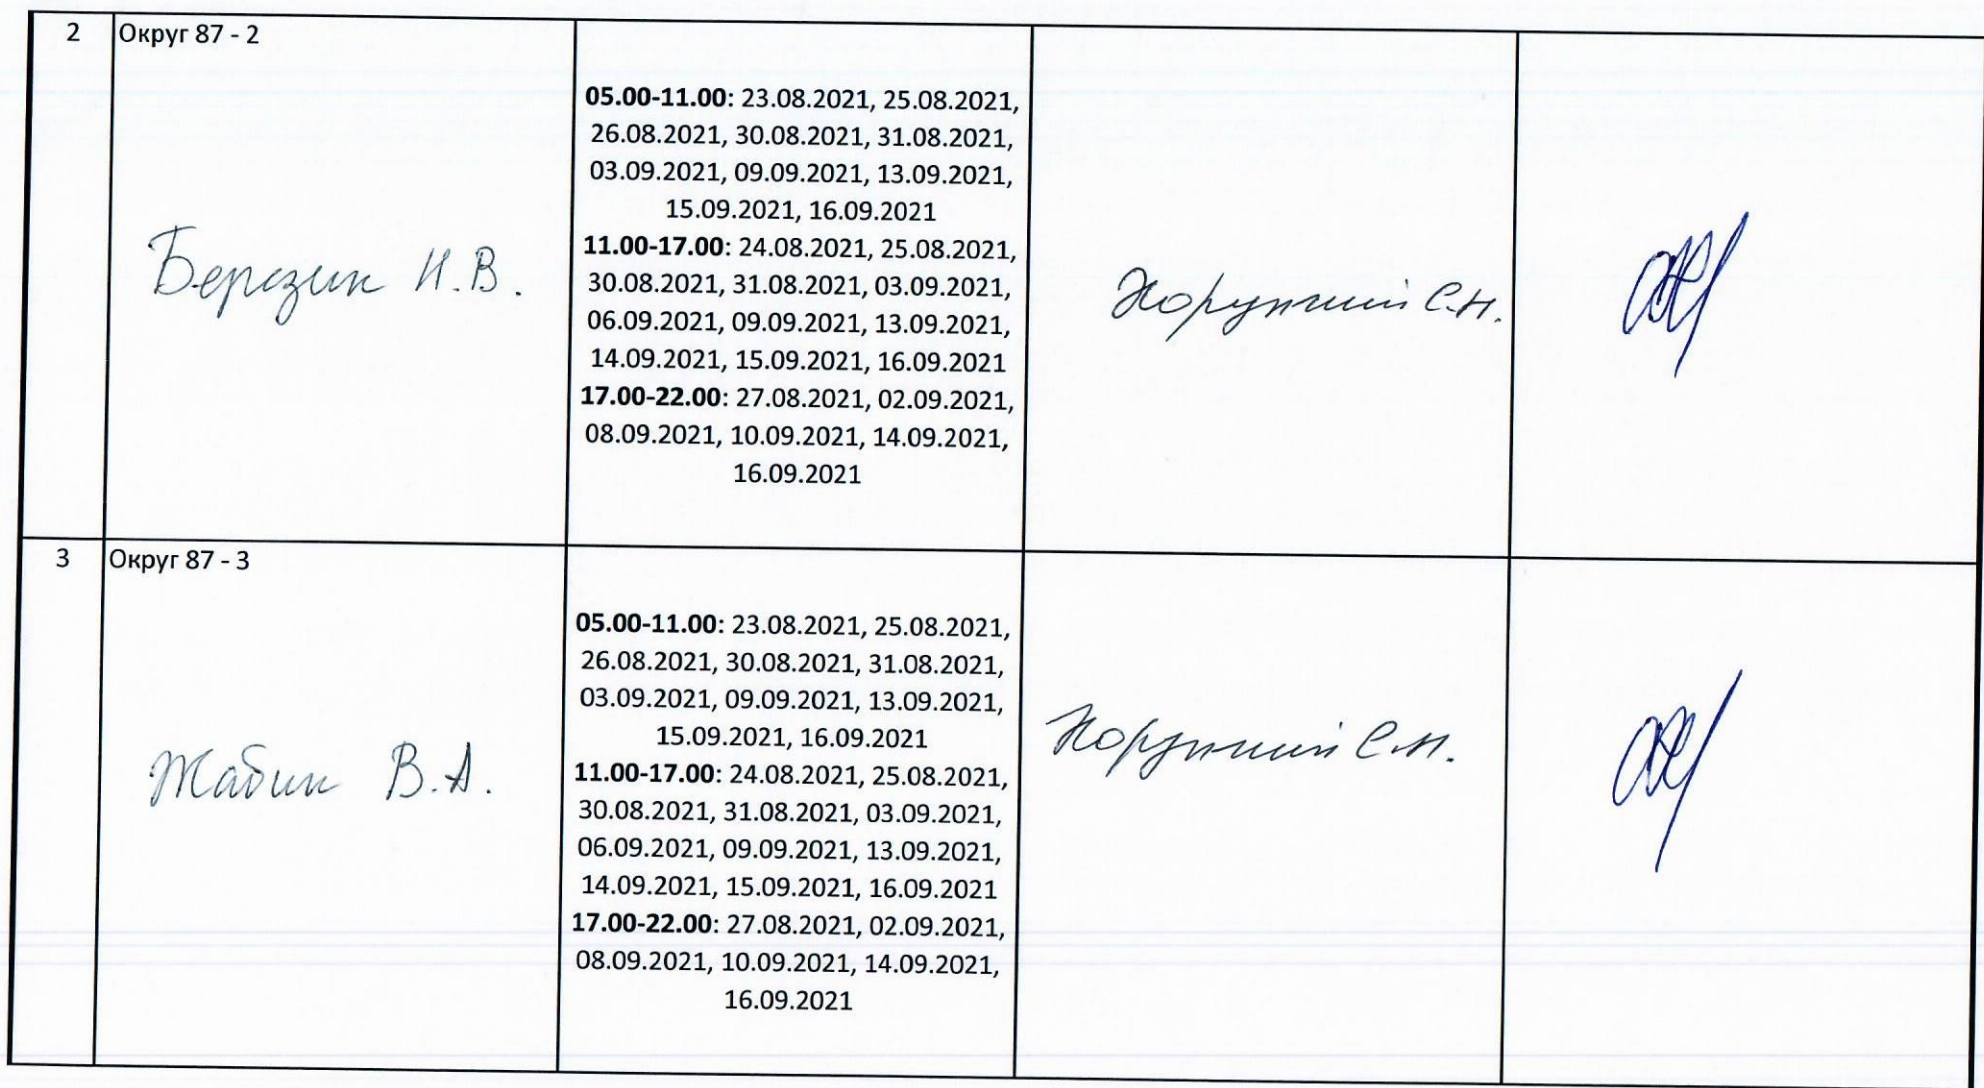 2 Округ 87 - 2
05.00-11.00: 23.08.2021, 25.08.2021,
26.08.2021, 30.08.2021, 31.08.2021,
03.09.2021, 09.09.2021, 13.09.2021,
15.09.2021, 16.09.2021
11.00-17.00: 24.08.2021, 25.08.2021,
30.08.2021, 31.08.2021, 03.09.2021,
06.09.2021, 09.09.2021, 13.09.2021,
14.09.2021, 15.09.2021, 16.09.2021
17.00-22.00: 27.08.2021, 02.09.2021,
08.09.2021, 10.09.2021, 14.09.2021,
16.09.2021
Березин И.В.
С.Н.
3 Округ 87 - 3
05.00-11.00: 23.08.2021, 25.08.2021,
26.08.2021, 30.08.2021, 31.08.2021,
03.09.2021, 09.09.2021, 13.09.2021,
15.09.2021, 16.09.2021
11.00-17.00: 24.08.2021, 25.08.2021,
30.08.2021, 31.08.2021, 03.09.2021,
06.09.2021, 09.09.2021, 13.09.2021,
14.09.2021, 15.09.2021, 16.09.2021
17.00-22.00: 27.08.2021, 02.09.2021,
08.09.2021, 10.09.2021, 14.09.2021,
16.09.2021
Жабин В.А.
С.Н.